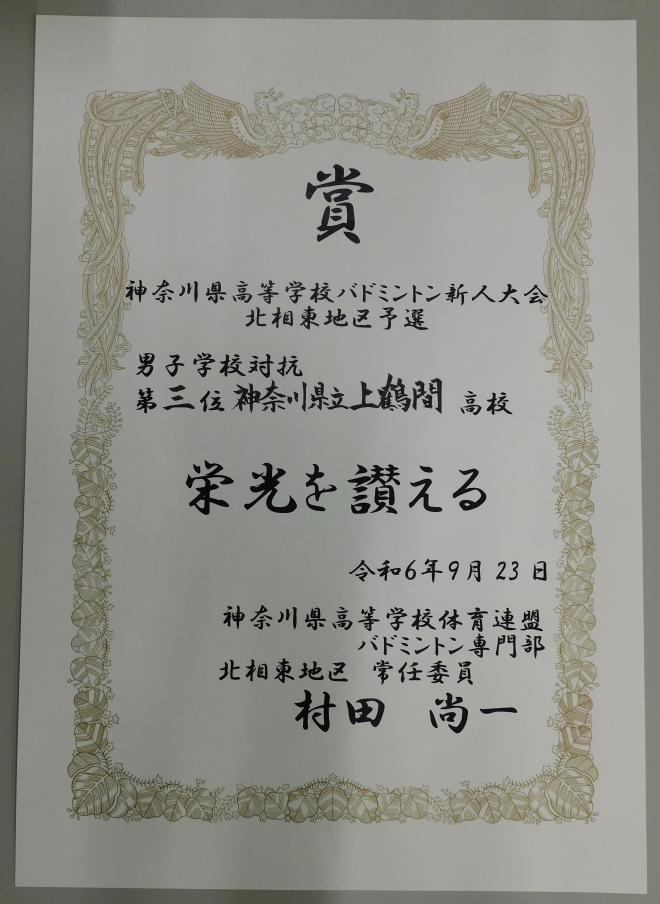 賞
神奈川県高等学校バドミントン新人大会
北相東地区予選
男子学校対抗
第三位 神奈川県立上鶴間 高校
栄光を讃える
令和6年9月23日
神奈川県高等学校体育連盟
バドミントン専門部
北相東地区 常任委員
村田 尚一